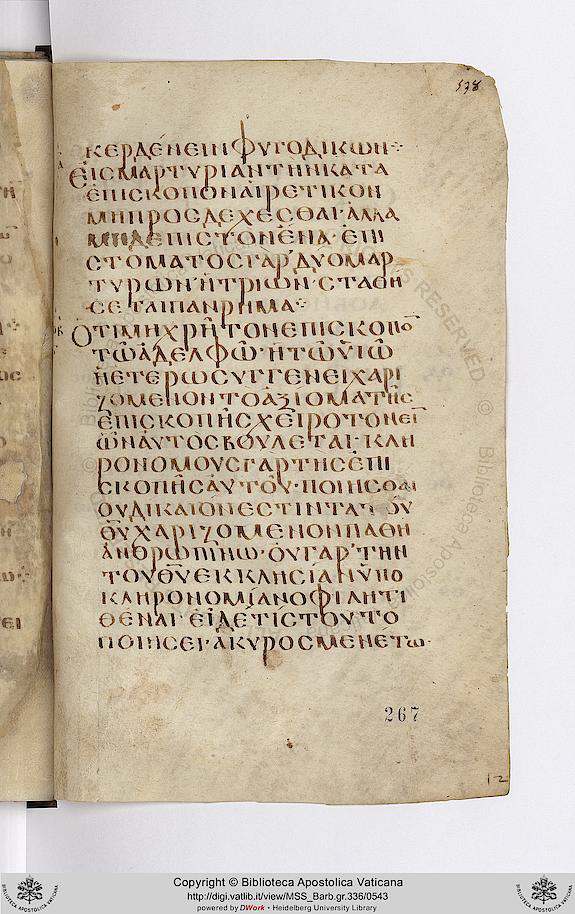 538
κερδένειν φυγοδικων·:·
Εἰς μαρτυρίαν τὴν κατα
επισκοπον αιρετικον
μη προσδεχεσθαι· αλλα
μηδε πιστον ἑνα· επι
στοματος γαρ δυο μαρ
τυρων· ἠ τριων· σταθη
σεται παν ρημα·:·
Ὁτι μη χρῆ τον επισκοπο̅
τῶ ἀδελφῶ· ἠ τῶ ϋἱῶ
ἠ ετερω συγγενει χαρι
ζομενον το αξιομα της
επισκοπῆς χειροτονει̅
ὧν ἀυτος βουλεται· κλη
ρονομους γαρ της επι
σκοπῆς ἀυτου· ποιησθαι
ου δικαιον εστιν τα του
θυ̅ χαριζομενον παθη
ἀνθρωπινω· ὀυ γαρ την
του θυ̅ εκκλησίαν ϋπο
κληρονομίαν οφιλη τι
θεναι· ει δέ τίς τουτο
ποιησει· ακυρος μενέτω·
267
12
Copyright © Biblioteca Apostolica Vaticana
http://digi.vatlib.it/view/MSS_Barb.gr.336/0543
powered by DWork - Heidelberg University Library